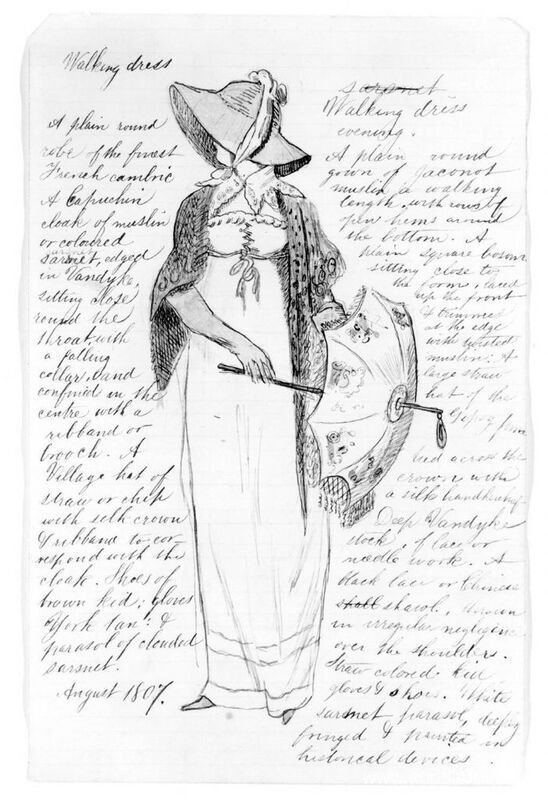 Walking dress
A plain round
robe of the finest
French cambric
A Capuchin
cloak of muslin
or coloured
sarsnet, edged
in Vandyke,
sitting close
round the
throat, with
a falling
collar, and
confined in the
centre with a
ribband or
brooch. A
Village hat of
straw or chip
with silk crown
& ribband to cor-
respond with the
cloak. Shoes of
brown kid; gloves
York tan; &
parasol of clouded
sarsnet.
August 1807.
sarsnet
Walking dress
evening.
A plain round
gown of Jaconot
muslin, a walking
length, with rows of
open hems around
the bottom. A
plain square bosom
sitting close to
the form, laced
up the front
& trimmed
at the edge
with twisted
muslin; A
large straw
hat of the
Gipsy form
tied across the
crown with
a silk handkerchief
Deep Vandyke
stock, of lace or
needle work. A
black lace or Chinese
shall shawl, thrown
in irregular negligence
over the shoulders.
Straw colored kid
gloves & shoes. White
sarsnet parasol, deeply
fringed & painted in
historical devices.